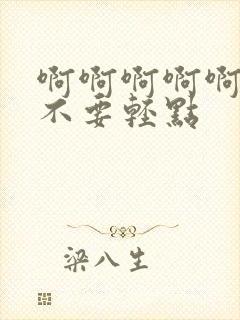 啊啊啊啊啊
不要轻點
梁八生